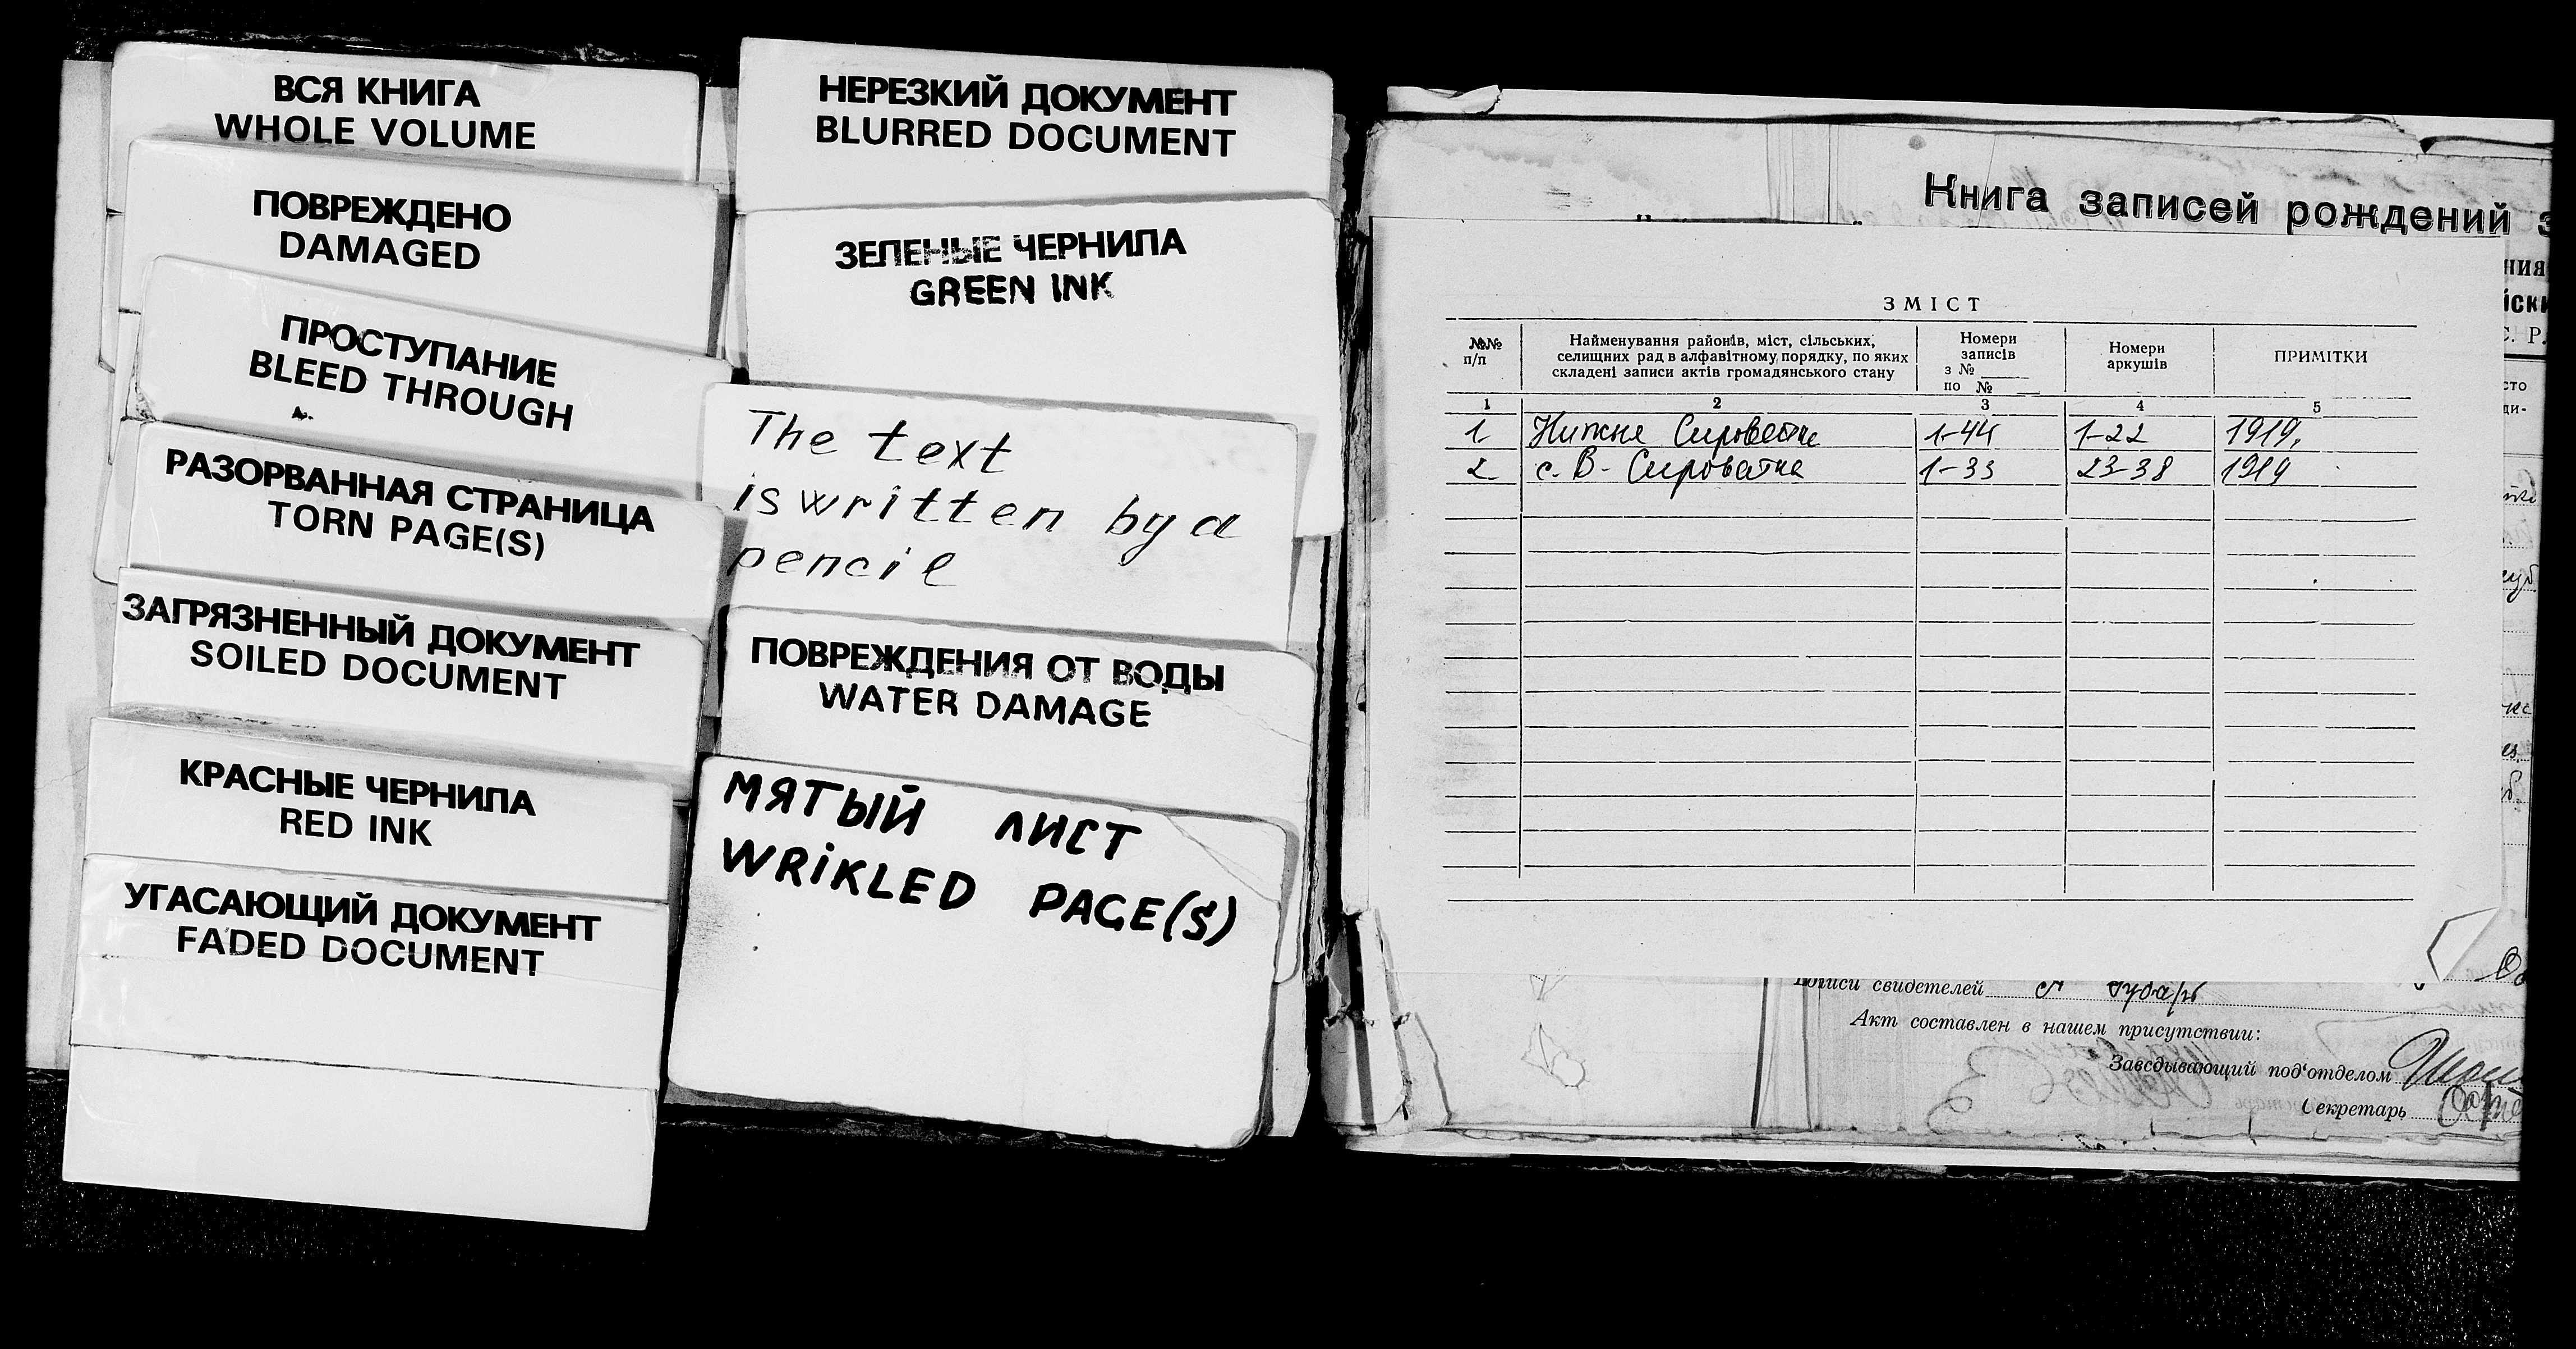 ВСЯ КНИГА
WHOLE VOLUME
ПОВРЕЖДЕНО
DAMAGED
ПРОСТУПАНИЕ
BLEED THROUGH
РАЗОРВАННАЯ СТРАНИЦА
TORN PAGE(S)
ЗАГРЯЗНЕННЫЙ ДОКУМЕНТ
SOILED DOCUMENT
КРАСНЫЕ ЧЕРНИЛА
RED INK
УГАСАЮЩИЙ ДОКУМЕНТ
FADED DOCUMENT
НЕРЕЗКИЙ ДОКУМЕНТ
BLURRED DOCUMENT
ЗЕЛЕНЫЕ ЧЕРНИЛА
GREEN INK
The text
is written by a
pencil
ПОВРЕЖДЕНИЯ ОТ ВОДЫ
WATER DAMAGE
МЯТЫЙ ЛИСТ
WRIKLED PAGE(S)
Книга записей рождений
ЗМІСТ
№№ п/п
Найменування районів, міст, сільських,
селищних рад в алфавітному порядку, по яких
складені записи актів громадянського стану
Номери
записів
з № ____
по № ____
Номери
аркушів
ПРИМІТКИ
1 2 3 4 5
1. Нижня Сироватка 1-44 1-22 1919.
2. с. В-Сироватка 1-33 23-38 1919
свидетелей
Акт составлен в нашем присутствии:
Заведывающий под'отделом
Секретарь